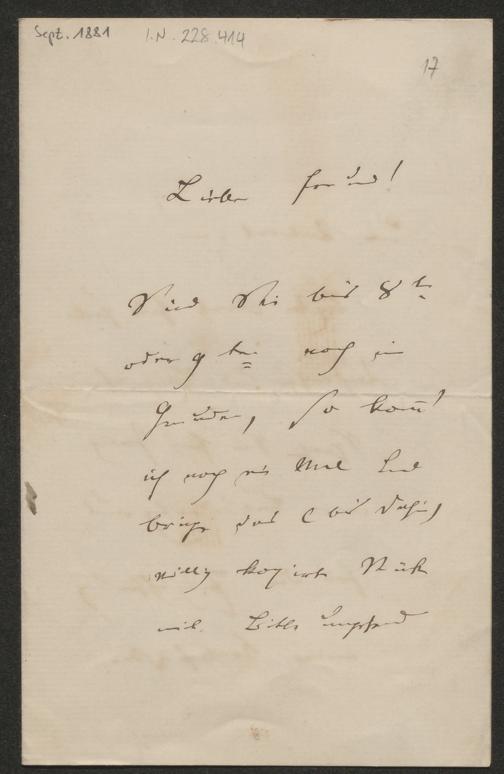 Sept. 1881 I.N. 228.414
17
Lieber Freund!
Sind Sie bis 8ten
oder 9ten noch in
Gmunden, so kom̄'
ich noch ein Mal und
bringe das bis dahin,
kopirte Stück
mit. Bitte umgehend